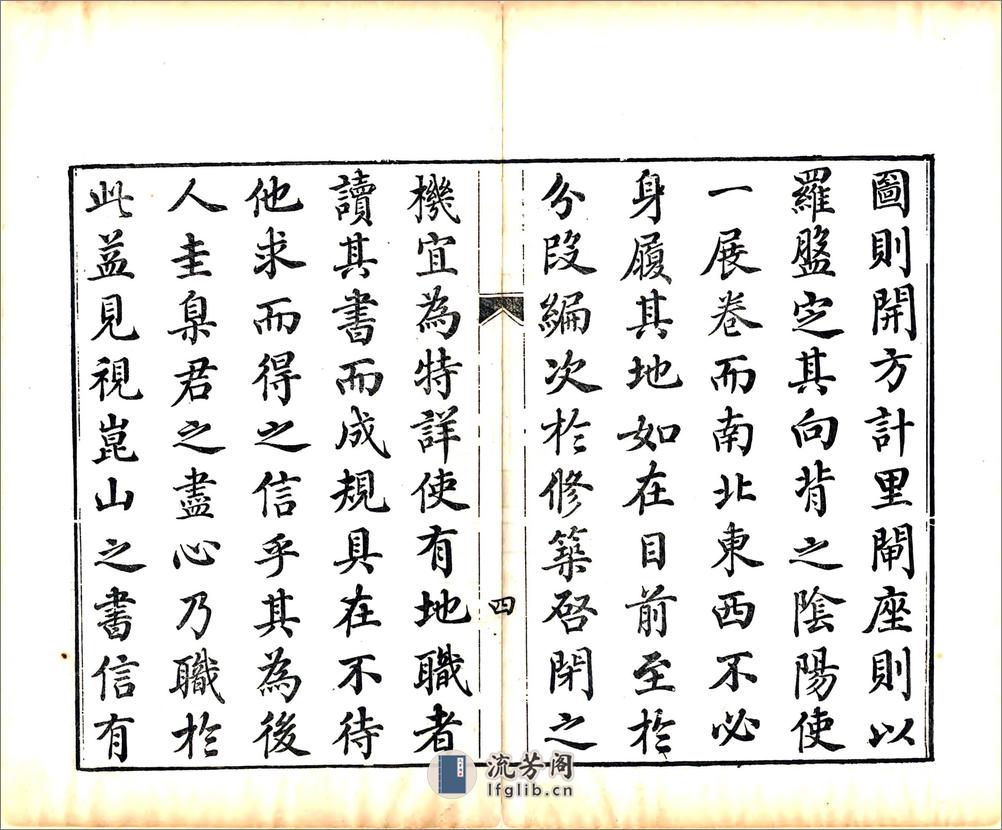 圖則開方計里閘座則以
羅盤定其向背之陰陽使
一展卷而南北東西不必
身履其地如在目前至於
分段編次於修築啓閉之
四
機宜為特詳使有地職者
讀其書而成規具在不待
他求而得之信乎其為後
人圭臬君之盡心乃職於
此益見視崑山之書信有
流芳阁
lfglib.cn